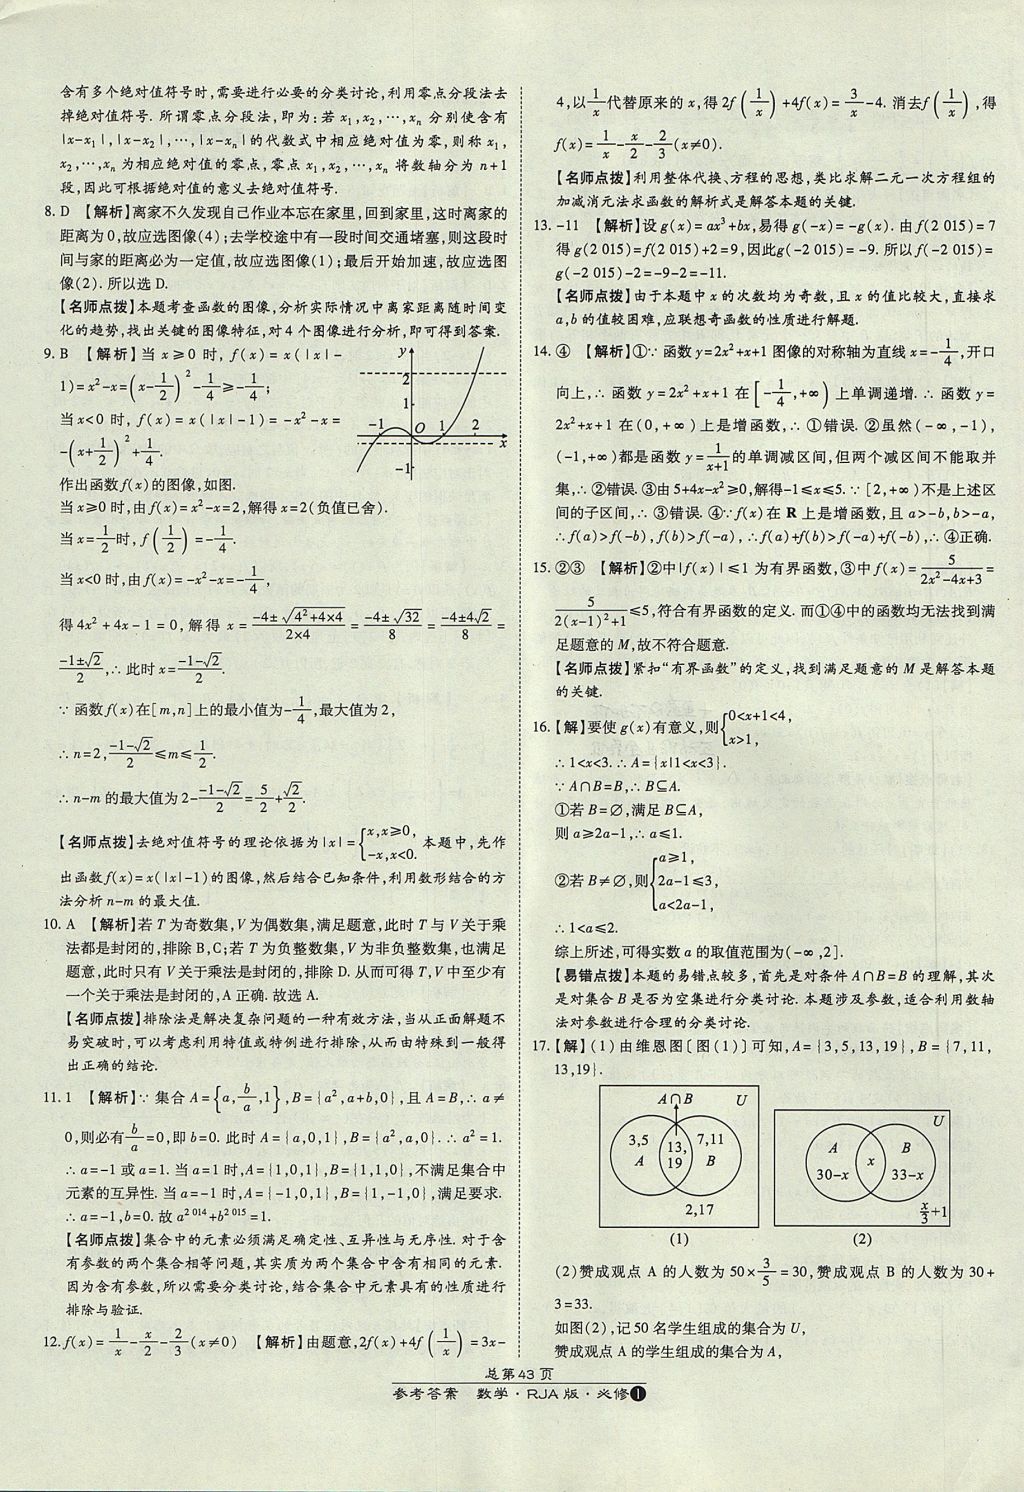 含有多个绝对值符号时,需要进行必要的分类讨论,利用零点分段法去
掉绝对值符号. 所谓零点分段法,即为:若 x₁,x₂,…,xₙ 分别使含有
|x-x₁|,|x-x₂|,…,|x-xₙ|的代数式中相应绝对值为零,则称 x₁,
x₂,…,xₙ 为相应绝对值的零点,零点 x₁,x₂,…,xₙ 将数轴分为 n+1
段,因此可根据绝对值的意义去绝对值符号.
8. D 【解析】离家不久发现自己作业本忘在家里,回到家里,这时离家的
距离为0,故应选图像(4);去学校途中有一段时间交通堵塞,则这段时
间与家的距离必为一定值,故应选图像(1);最后开始加速,故应选图
像(2). 所以选 D.
【名师点拨】本题考查函数的图像,分析实际情况中离家距离随时间变
化的趋势,找出关键的图像特征,对4个图像进行分析,即可得到答案.
9. B 【解析】当 x≥0 时, f(x)=x(|x|-
1)=x²-x=(x-1/2)²-1/4≥-1/4;
当 x<0 时, f(x)=x(|x|-1)=-x²-x=
-(x+1/2)²+1/4.
y
2
1
-1 O 1 2 x
-1
作出函数f(x)的图像,如图.
当 x≥0 时,由f(x)=x²-x=2,解得 x=2(负值已舍).
当 x=1/2时, f(1/2)=-1/4.
当 x<0 时,由 f(x)=-x²-x=-1/4,
得 4x²+4x-1=0,解得 x=(-4±√(4²+4×4))/(2×4)=(-4±√32)/8=(-4±4√2)/8=
(-1±√2)/2,∴此时 x=(-1-√2)/2.
∵函数f(x)在[m,n]上的最小值为-1/4,最大值为2,
∴n=2,(-1-√2)/2≤m≤1/2.
∴n-m 的最大值为 2-(-1-√2)/2=5/2+√2/2.
【名师点拨】去绝对值符号的理论依据为|x|={x,x≥0, -x,x<0. 本题中,先作
出函数f(x)=x(|x|-1)的图像,然后结合已知条件,利用数形结合的方
法分析 n-m 的最大值.
10. A 【解析】若 T 为奇数集,V 为偶数集,满足题意,此时 T 与 V 关于乘
法都是封闭的,排除 B,C;若 T 为负整数集,V 为非负整数集,也满足
题意,此时只有 V 关于乘法是封闭的,排除 D. 从而可得 T,V 中至少有
一个关于乘法是封闭的,A 正确. 故选 A.
【名师点拨】排除法是解决复杂问题的一种有效方法,当从正面解题不
易突破时,可以考虑利用特值或特例进行排除,从而由特殊到一般得
出正确的结论.
11. 1 【解析】∵集合 A={a,b/a,1},B={a²,a+b,0},且 A=B,∴a≠
0,则必有b/a=0,即 b=0. 此时 A={a,0,1},B={a²,a,0}.∴a²=1.
∴a=-1 或 a=1. 当 a=1 时,A={1,0,1},B={1,1,0},不满足集合中
元素的互异性. 当 a=-1 时,A={-1,0,1},B={1,-1,0},满足要求.
∴a=-1,b=0. 故 a²⁰¹⁴+b²⁰¹⁵=1.
【名师点拨】集合中的元素必须满足确定性、互异性与无序性. 对于含
有参数的两个集合相等问题,其实质为两个集合中含有相同的元素.
因为含有参数,所以需要分类讨论,结合集合中元素具有的性质进行
排除与验证.
12. f(x)=1/x-x/2-2/3(x≠0) 【解析】由题意,2f(x)+4f(1/x)=3x-
4,以1/x代替原来的 x,得 2f(1/x)+4f(x)=3/x-4. 消去f(1/x),得
f(x)=1/x-x/2-2/3(x≠0).
【名师点拨】利用整体代换、方程的思想,类比求解二元一次方程组的
加减消元法求函数的解析式是解答本题的关键.
13. -11 【解析】设 g(x)=ax³+bx,易得 g(-x)=-g(x). 由 f(2 015)=7
得 g(2 015)=f(2 015)+2=9,因此g(-2 015)=-9. 所以 f(-2 015)=
g(-2 015)-2=-9-2=-11.
【名师点拨】由于本题中 x 的次数均为奇数,且 x 的值比较大,直接求
a,b 的值较困难,应联想奇函数的性质进行解题.
14. ④ 【解析】①∵函数 y=2x²+x+1 图像的对称轴为直线 x=-1/4,开口
向上,∴函数 y=2x²+x+1 在[-1/4,+∞)上单调递增.∴函数 y=
2x²+x+1 在(0,+∞)上是增函数,∴①错误. ②虽然(-∞,-1),
(-1,+∞)都是函数 y=1/(x+1)的单调减区间,但两个减区间不能取并
集,∴②错误. ③由 5+4x-x²≥0,解得-1≤x≤5.∵[2,+∞)不是上述区
间的子区间,∴③错误. ④∵f(x)在 R 上是增函数,且 a>-b,b>-a,
∴f(a)>f(-b),f(b)>f(-a),∴f(a)+f(b)>f(-a)+f(-b),∴④正确.
15. ②③ 【解析】②中|f(x)|≤1 为有界函数,③中 f(x)=5/(2x²-4x+3)=
5/(2(x-1)²+1)≤5,符合有界函数的定义. 而①④中的函数均无法找到满
足题意的 M,故不符合题意.
【名师点拨】紧扣“有界函数”的定义,找到满足题意的 M 是解答本题
的关键.
16. 【解】要使 g(x)有意义,则{0<x+1<4, x>1,
∴1<x<3.∴A={x|1<x<3}.
∵A∩B=B,∴B⊆A.
①若 B=∅,满足 B⊆A,
则 a≥2a-1,∴a≤1.
②若 B≠∅,则{a≥1, 2a-1≤3, a<2a-1,
∴1<a≤2.
综上所述,可得实数 a 的取值范围为(-∞,2].
【易错点拨】本题的易错点较多,首先是对条件 A∩B=B 的理解,其次
是对集合 B 是否为空集进行分类讨论. 本题涉及参数,适合利用数轴
法对参数进行合理的分类讨论.
17. 【解】(1)由维恩图[图(1)]可知,A={3,5,13,19},B={7,11,
13,19}.
A∩B U
3,5 13, 7,11
A 19 B
2,17
(1)
U
A B
30-x x 33-x
x/3+1
(2)
(2)赞成观点 A 的人数为 50×3/5=30,赞成观点 B 的人数为 30+
3=33.
如图(2),记50名学生组成的集合为 U,
赞成观点 A 的学生组成的集合为 A,
总第43页
参考答案 数学·RJA版·必修1